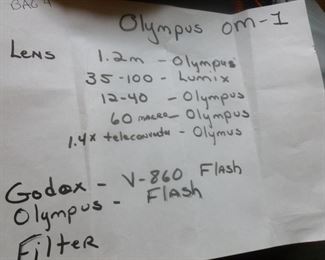 BAG 4
Olympus om-1
LENS 1.2m - Olympus
35-100 - Lumix
12-40 - Olympus
60 macro - Olympus
1.4x teleconverter - Olymus
Godox - V-860 Flash
Olympus - Flash
Filter